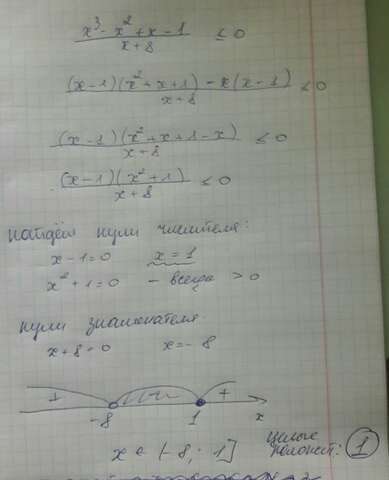 x³ - x² + x - 1 / x + 8 ≤ 0
(x - 1)(x² + x + 1) - x(x - 1) / x + 8 ≤ 0
(x - 1)(x² + x + 1 - x) / x + 8 ≤ 0
(x - 1)(x² + 1) / x + 8 ≤ 0
найдём нули числителя:
x - 1 = 0 x = 1
x² + 1 = 0 - всегда > 0
нули знаменателя
x + 8 = 0 x = - 8
+ - +
-8 1 x
x ∈ (-8; 1]
целые
положит: 1